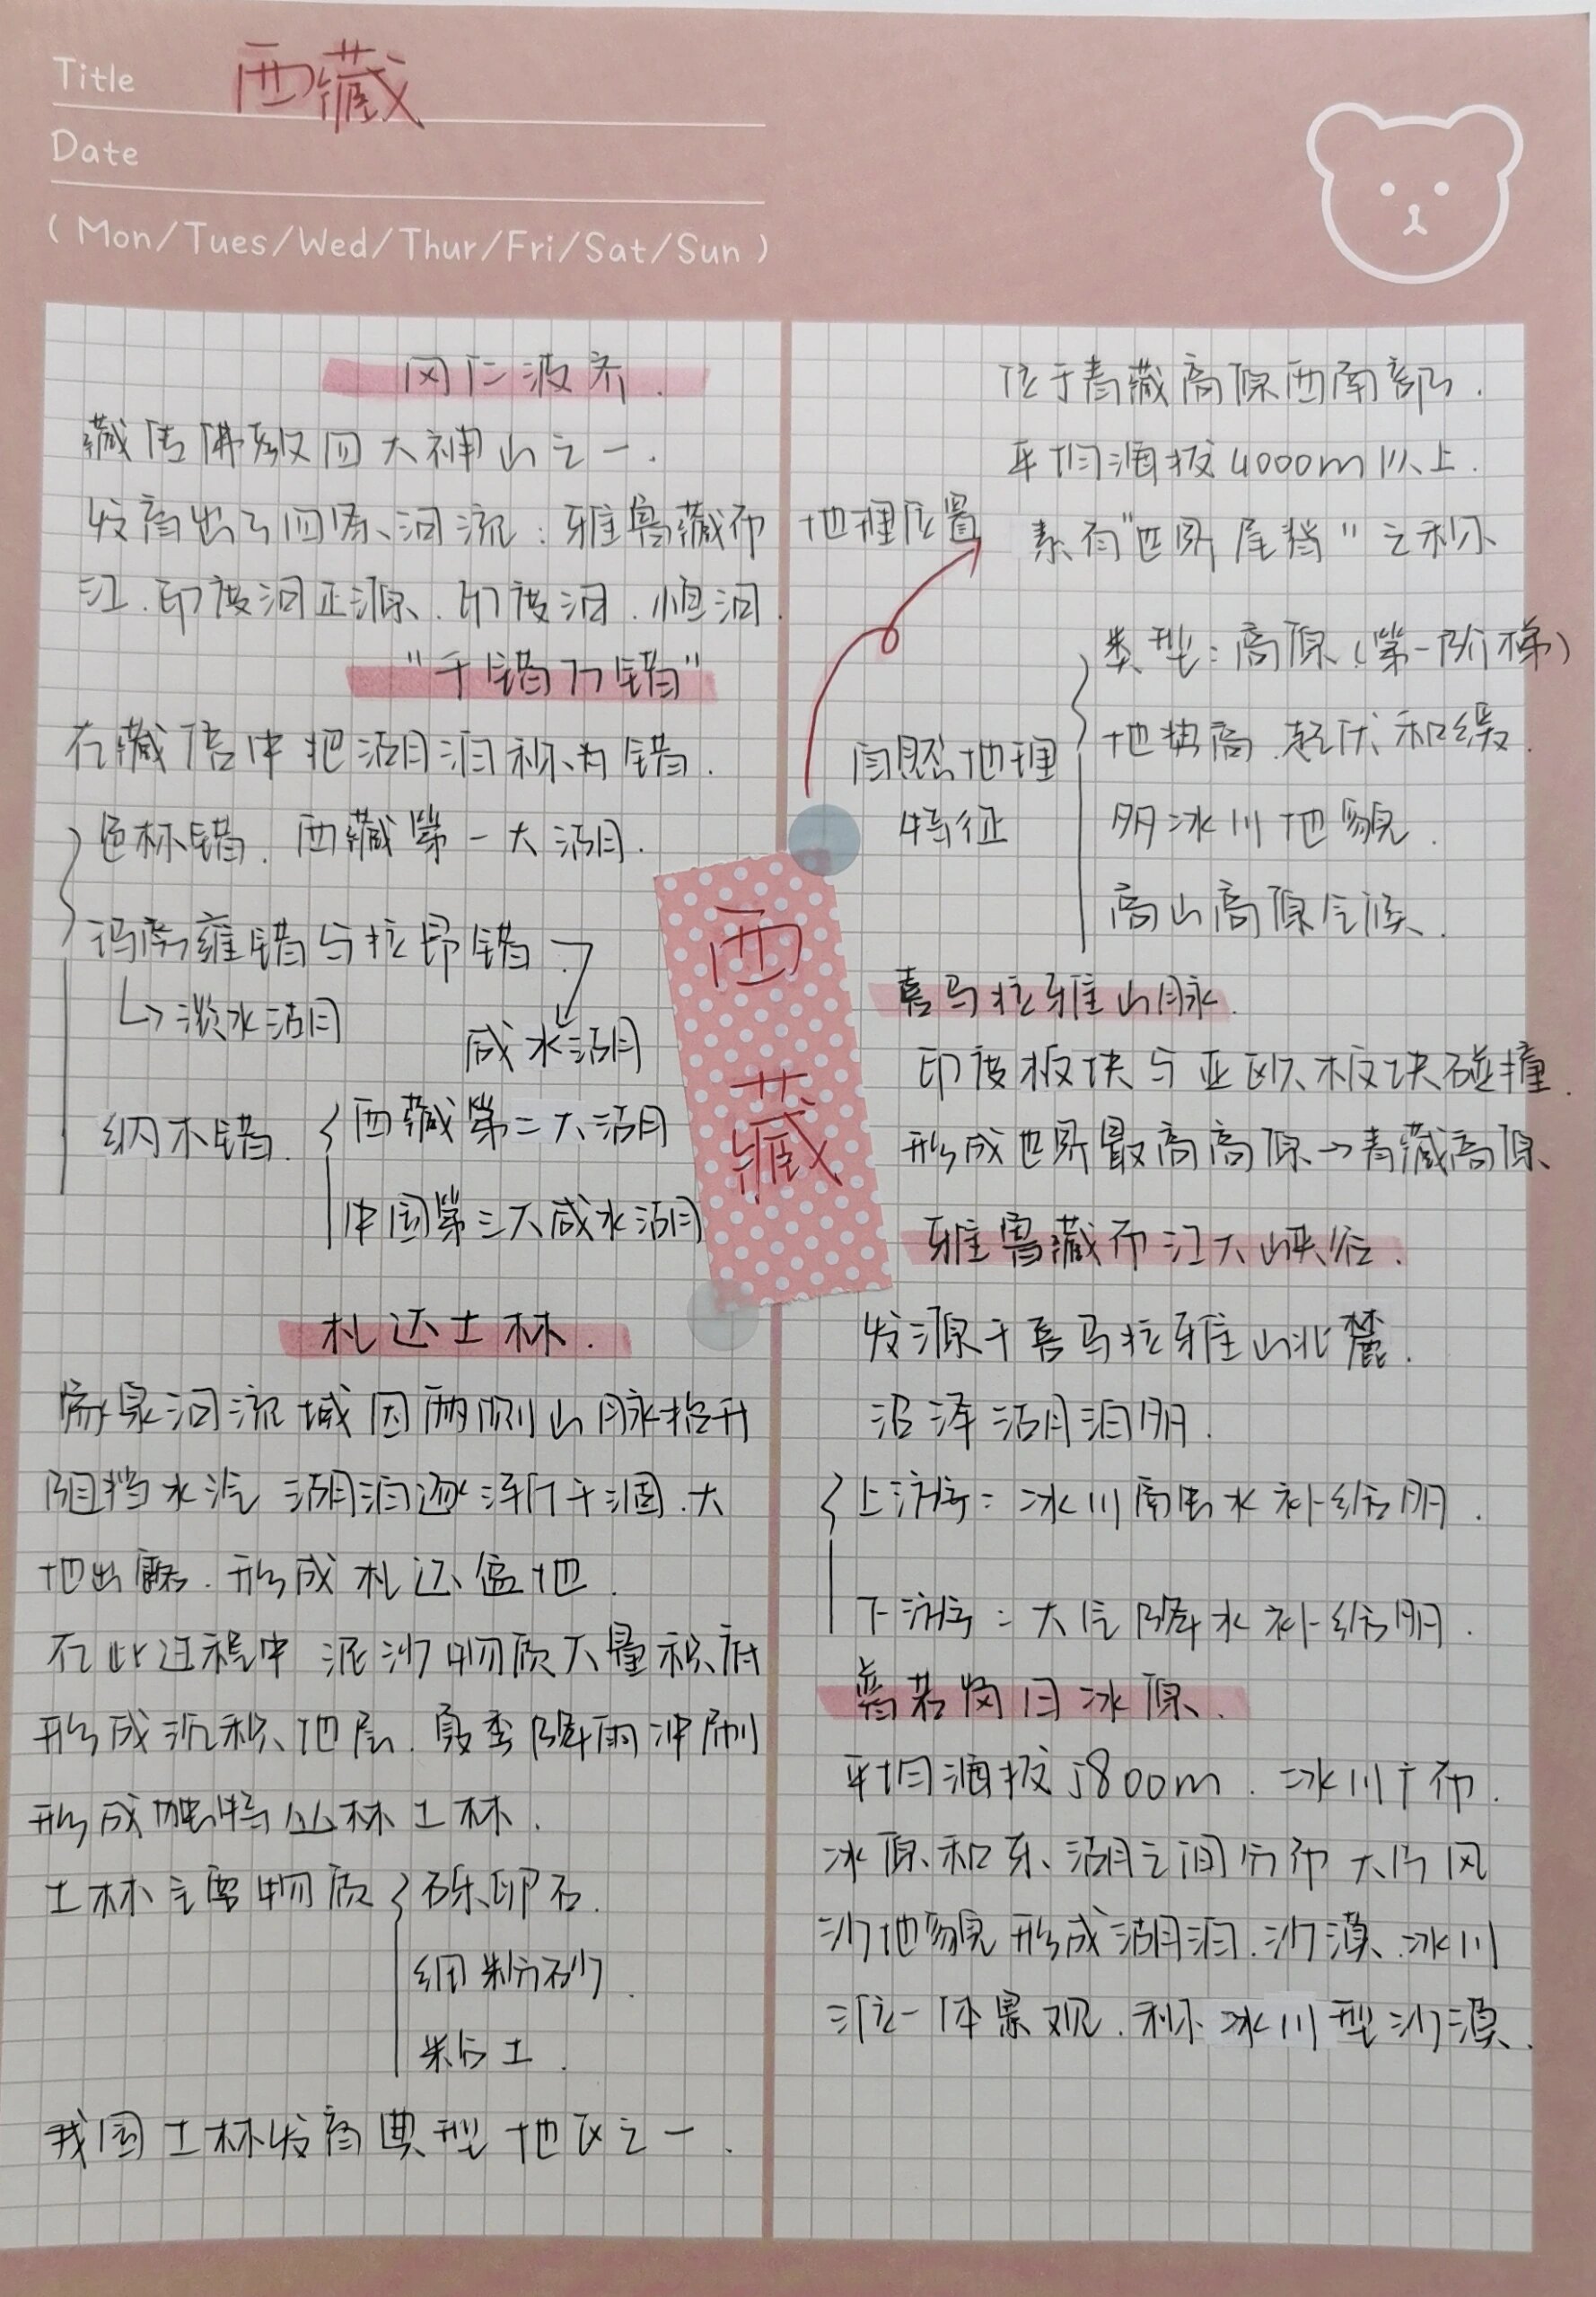 Title 西藏
Date
( Mon/Tues/Wed/Thur/Fri/Sat/Sun )
冈仁波齐.
藏传佛教四大神山之一.
发育出了四条河流: 雅鲁藏布
江.印度河正源.印度河.恒河.
"千错万错"
在藏语中把湖泊称为错.
色林错. 西藏第一大湖.
玛旁雍错与拉昂错
↳淡水湖
咸水湖
纳木错.
西藏第二大湖
中国第三大咸水湖
札达土林.
象泉河流域因两侧山脉抬升
阻挡水汽 湖泊逐渐干涸.大
地出露.形成札达盆地.
在此过程中 泥沙物质大量积存
形成沉积地层.夏季降雨冲刷
形成独特丛林土林.
土林主要物质
砾卵石.
细粉砂.
粘土.
我国土林发育典型地区之一.
西
藏
地理位置
位于青藏高原西南部.
平均海拔4000m以上.
素有"世界屋脊"之称
自然地理
特征
类型:高原(第一阶梯)
地势高.起伏和缓.
多冰川地貌.
高山高原气候.
喜马拉雅山脉.
印度板块与亚欧板块碰撞.
形成世界最高高原→青藏高原
雅鲁藏布江大峡谷.
发源于喜马拉雅山北麓.
沼泽湖泊多.
上游: 冰川融水补给多.
下游: 大气降水补给多.
普若岗日冰原.
平均海拔5800m.冰川广布.
冰原和东湖之间分布大片风
沙地貌形成湖泊.沙漠.冰川
三位一体景观.称冰川型沙漠.